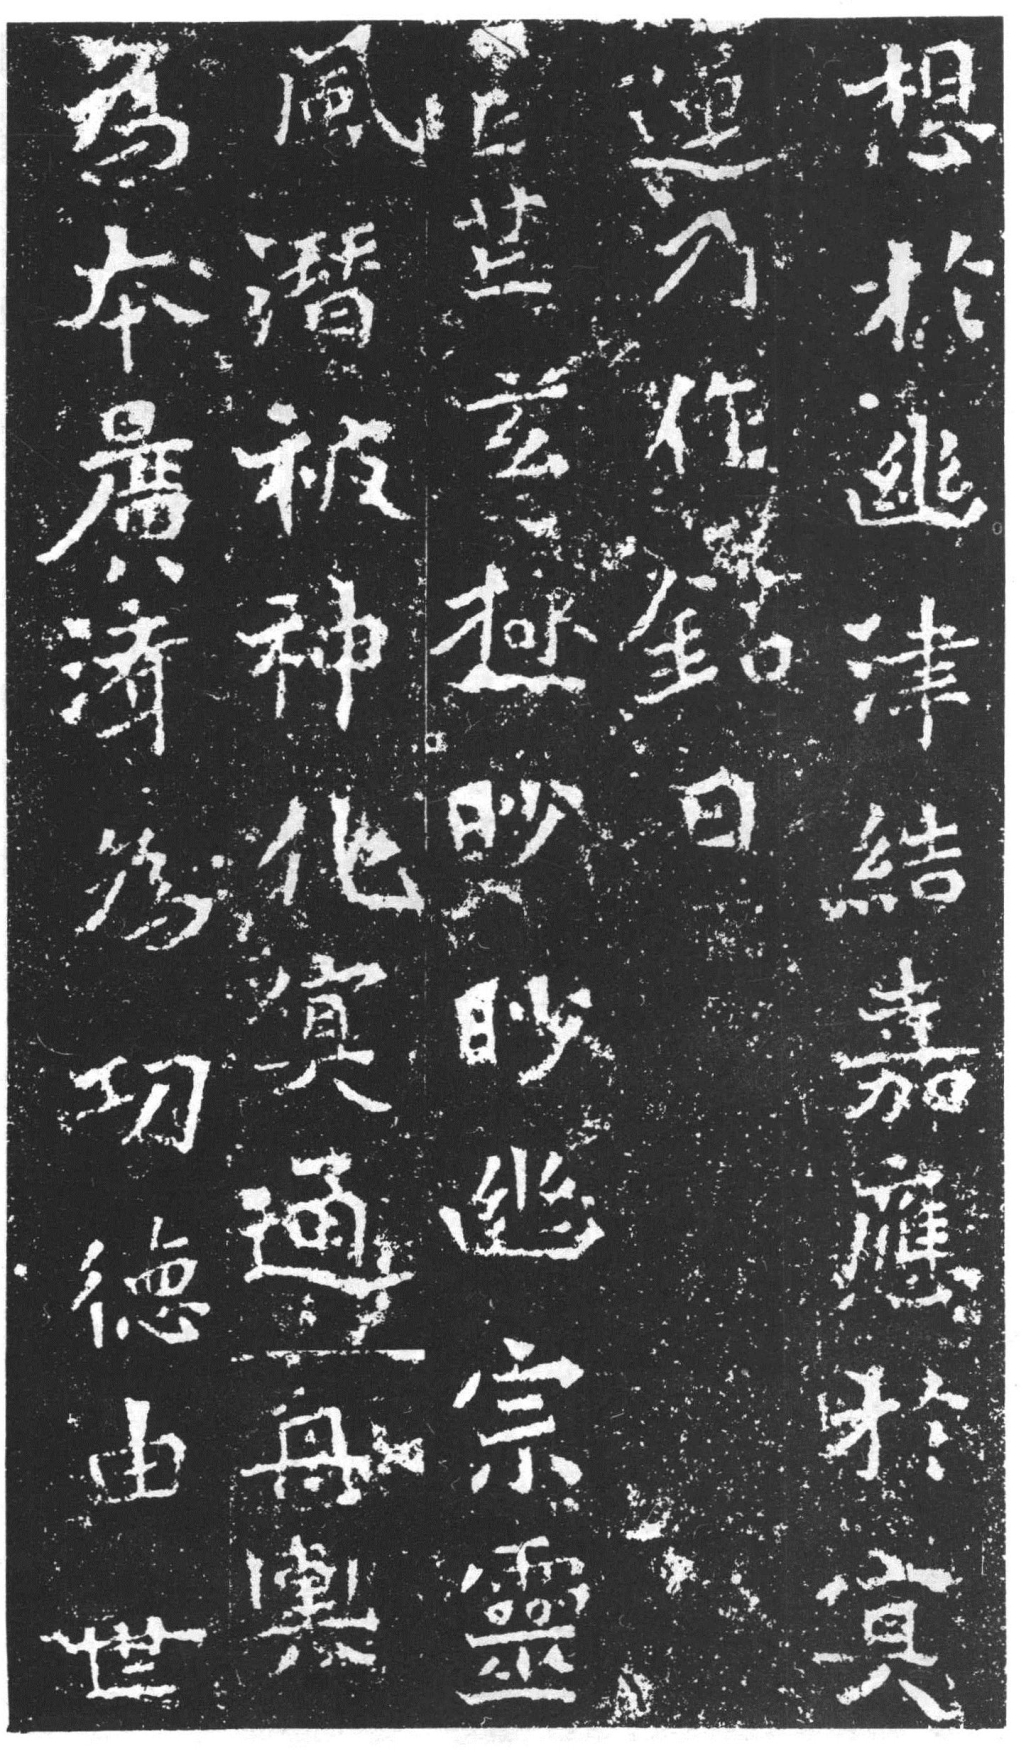 想於幽津結嘉應於冥
運乃作銘曰
芒芒玄極眇眇幽宗靈
風潛被神化冥通舟輿
為本廣濟為功德由世